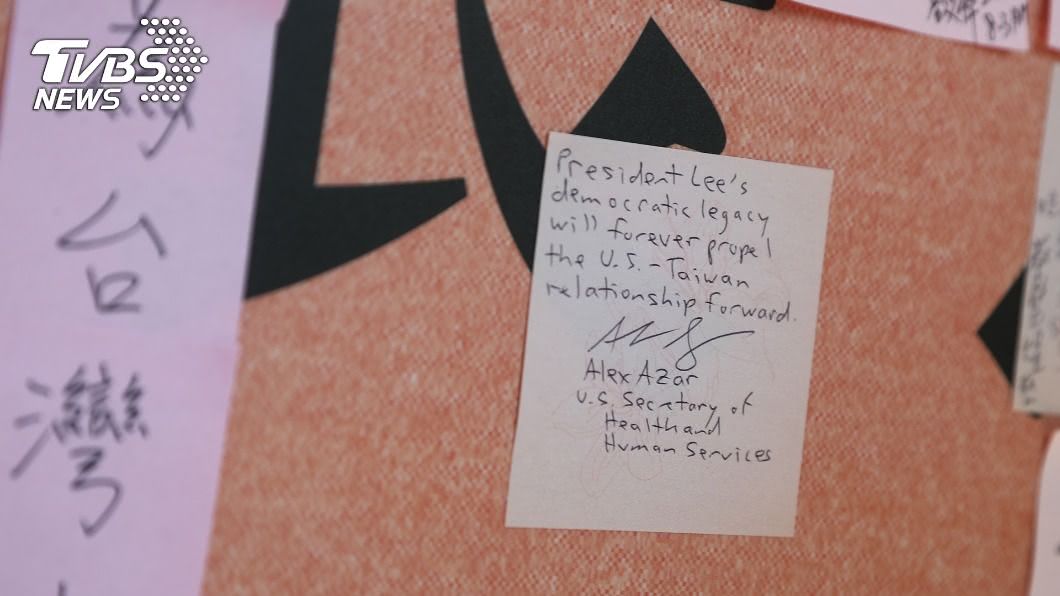 TVBS
NEWS
台
灣
President Lee's
democratic legacy
will forever propel
the U.S.-Taiwan
relationship forward.
Alex Azar
U.S. Secretary of
Health and
Human Services